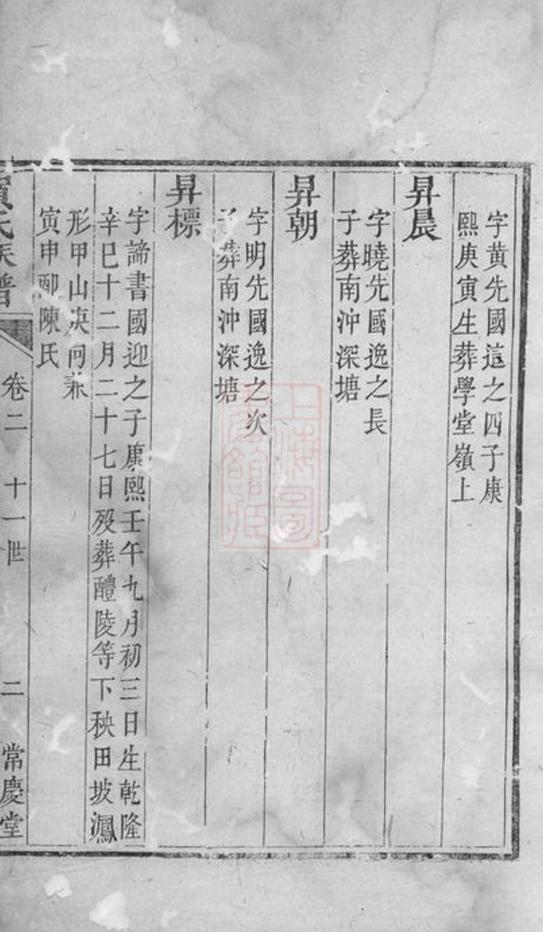 字黄先國這之四子康
熙庚寅生葬學堂嶺上
昇晨
字曉先國逸之長
子葬南沖深塘
昇朝
字明先國逸之次
子葬南沖深塘
昇標
字諦書國迎之子康熙壬午九月初三日生乾隆
辛巳十二月二十七日歿葬醴陵等下秧田坡鳳
形甲山庚向兼
寅申配陳氏
氏族譜
卷二
十一世
二
常慶堂
上海圖